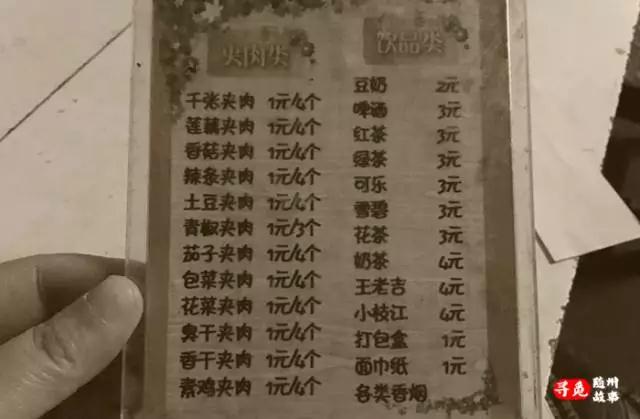 夹肉类
千张夹肉 1元/4个
莲藕夹肉 1元/4个
香菇夹肉 1元/4个
辣条夹肉 1元/4个
土豆夹肉 1元/4个
青椒夹肉 1元/3个
茄子夹肉 1元/4个
包菜夹肉 1元/4个
花菜夹肉 1元/4个
臭干夹肉 1元/4个
香干夹肉 1元/4个
素鸡夹肉 1元/4个
饮品类
豆奶 2元
啤酒 3元
红茶 3元
绿茶 3元
可乐 3元
雪碧 3元
花茶 3元
奶茶 4元
王老吉 4元
小枝江 4元
打包盒 1元
面巾纸 1元
各类香烟
寻觅 随州
故事